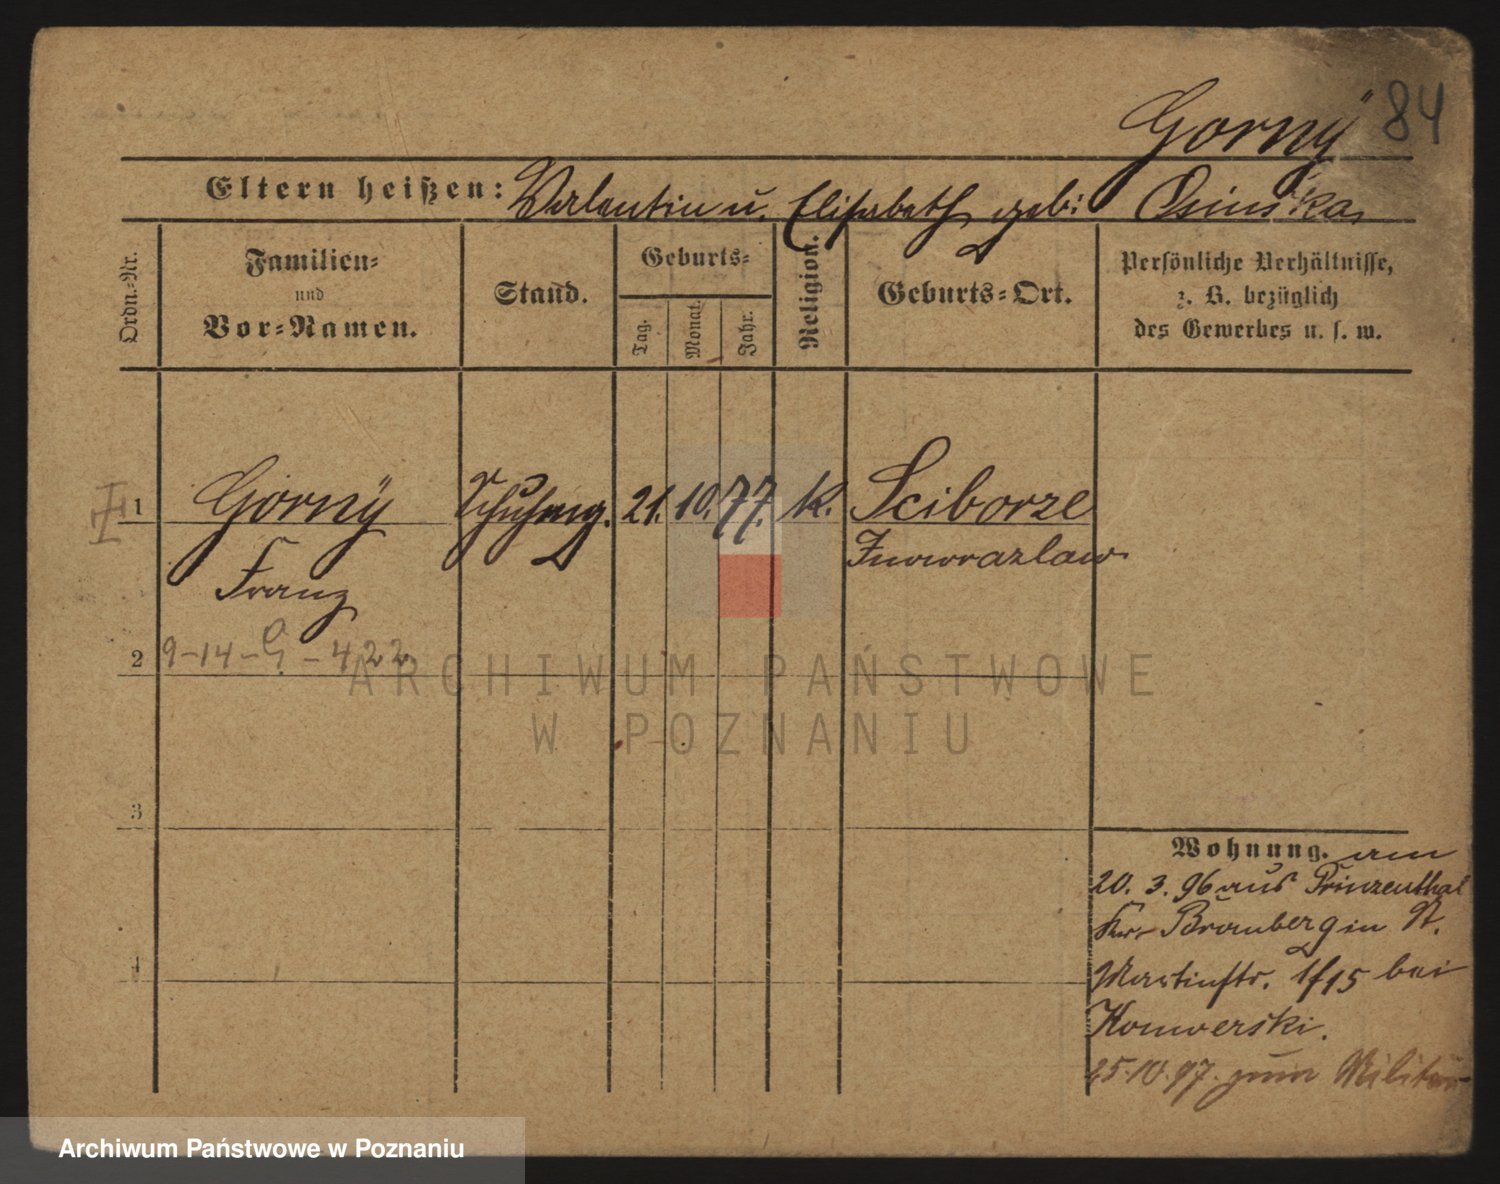 Gorny 84
Eltern heißen: Valentin u. Elisabeth geb: Osinska
Ordn.-Nr.
Familien-
und
Vor-Namen.
Stand.
Geburts-
Tag.
Monat.
Jahr.
Religion.
Geburts-Ort.
Persönliche Verhältnisse,
z. B. bezüglich
des Gewerbes u. s. w.
I 1 Gorny Schuhmg. 21. 10. 77. k. Sciborze
Franz Inowrazlaw
2 9-14-G-422
3
4
Wohnung. am
20. 3. 96 aus Prinzenthal
Kr. Bromberg in St.
Martinstr. 1/15 bei
Konwerski.
25.10.97. zum Militär
ARCHIWUM PAŃSTWOWE
W POZNANIU
Archiwum Państwowe w Poznaniu